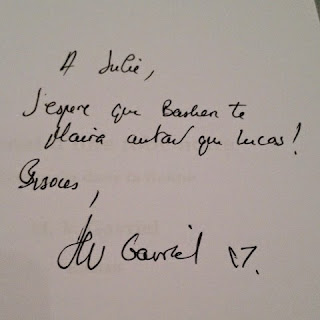 A Julie,
J'espère que Bastien te
plaira autant que Lucas !
Bisous,